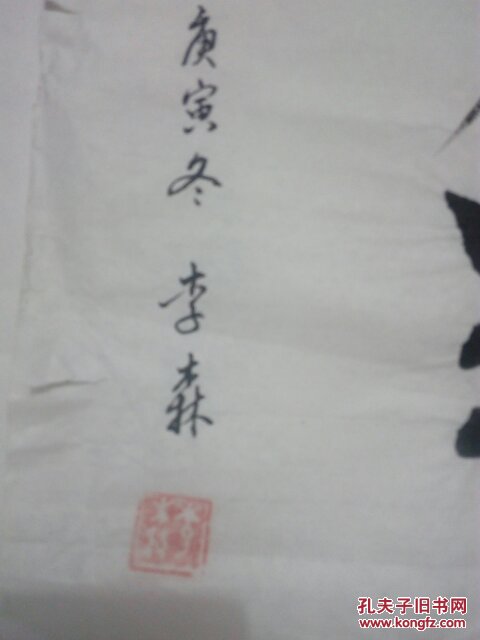 庚寅冬 李森
孔夫子旧书网
www.kongfz.com